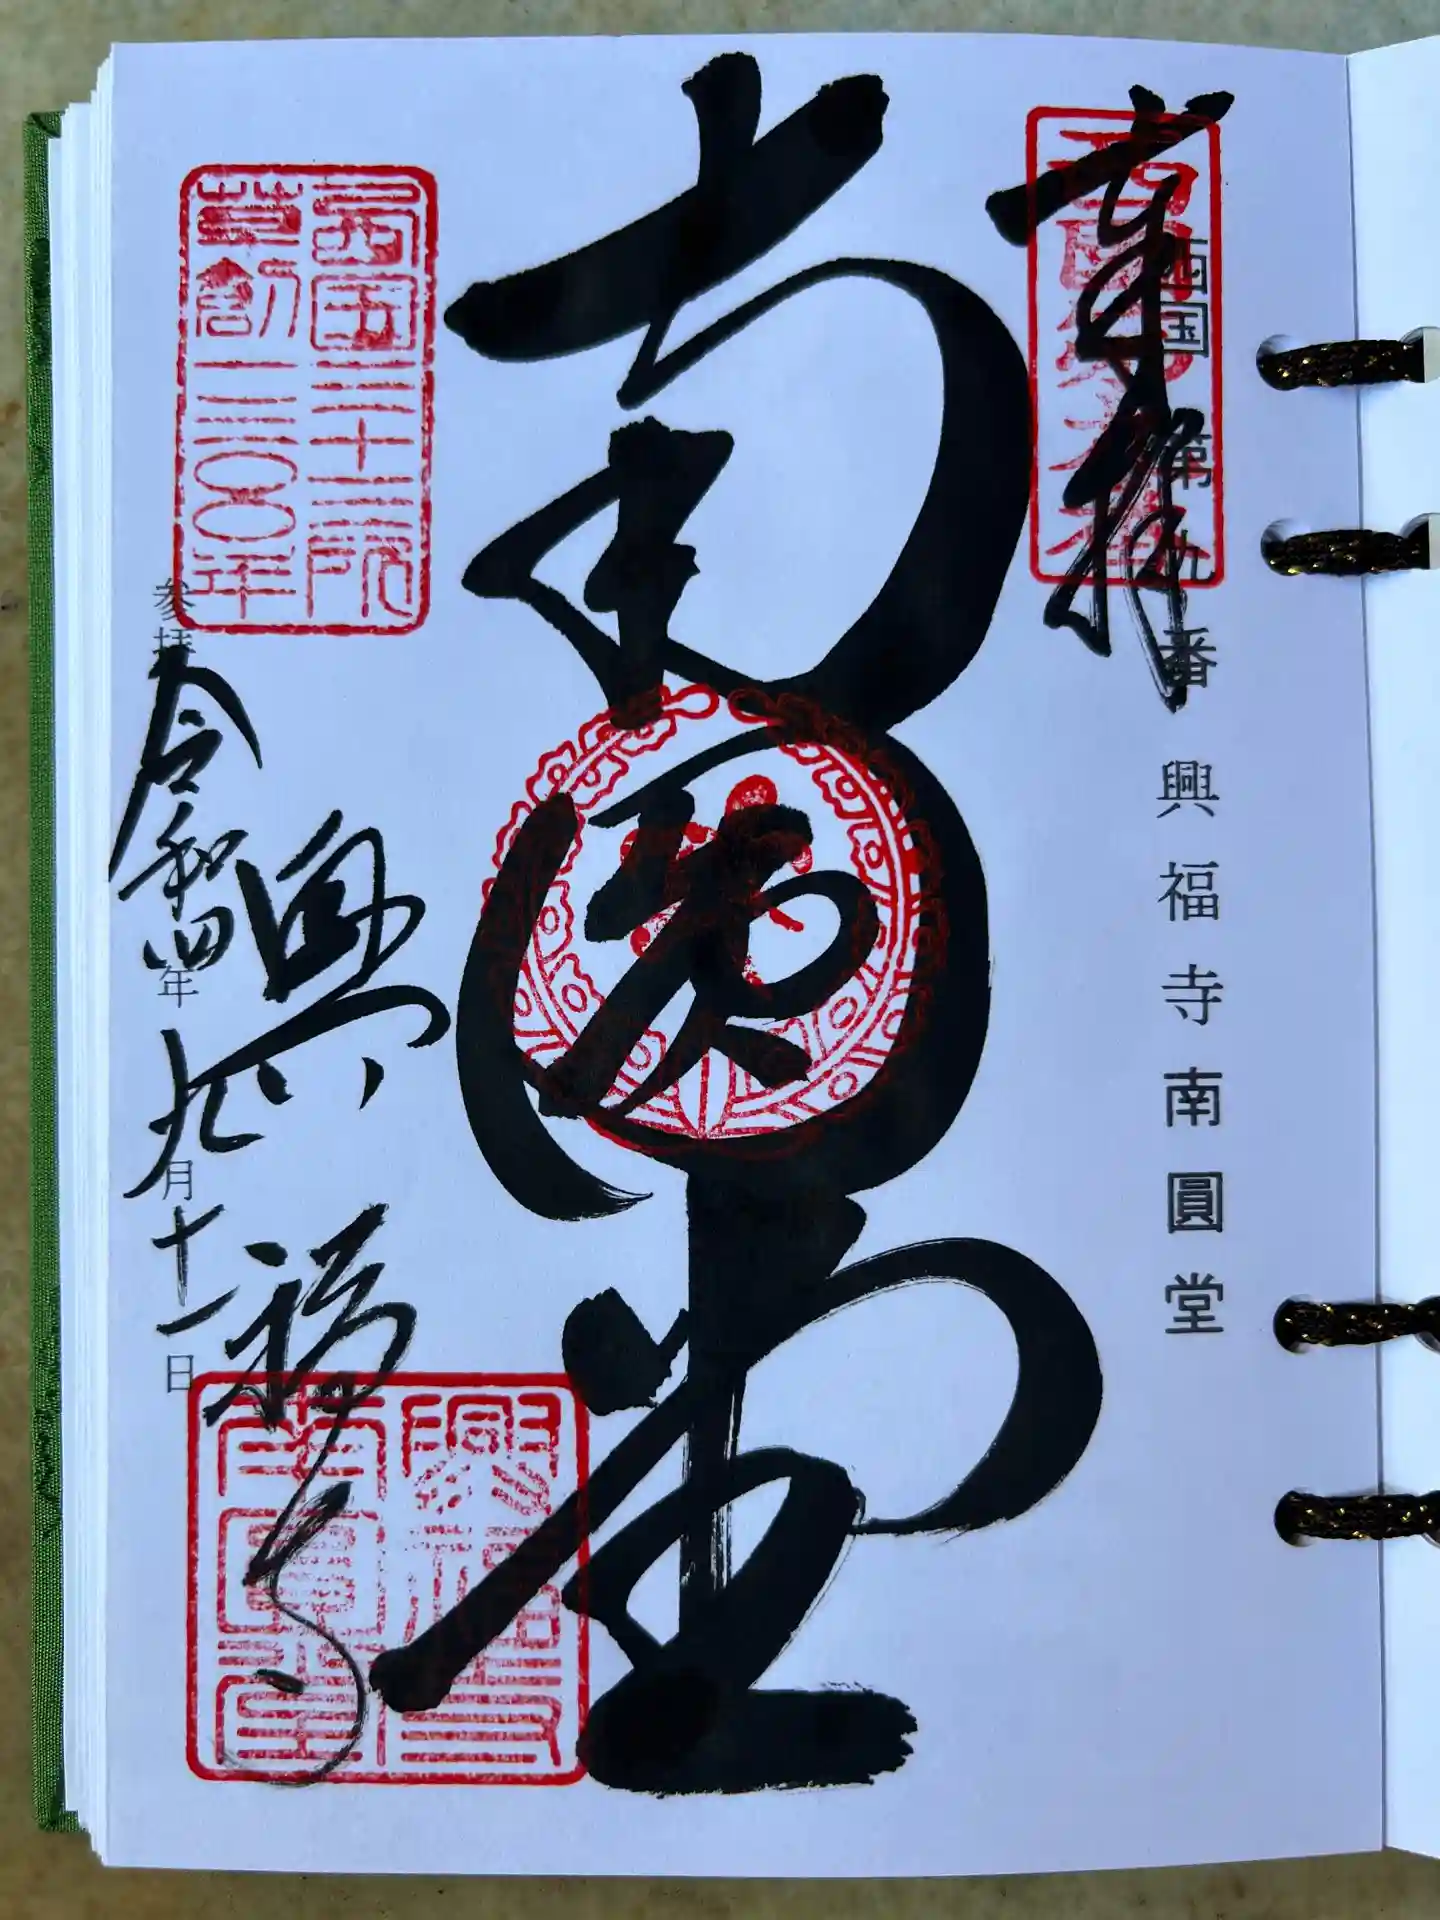 西国第九番興福寺南圓堂
奉拝
西国第九番
南圓堂
興福寺
西国三十三所
草創一三〇〇年
参拝
令和四年九月十一日
興福寺
南圓堂